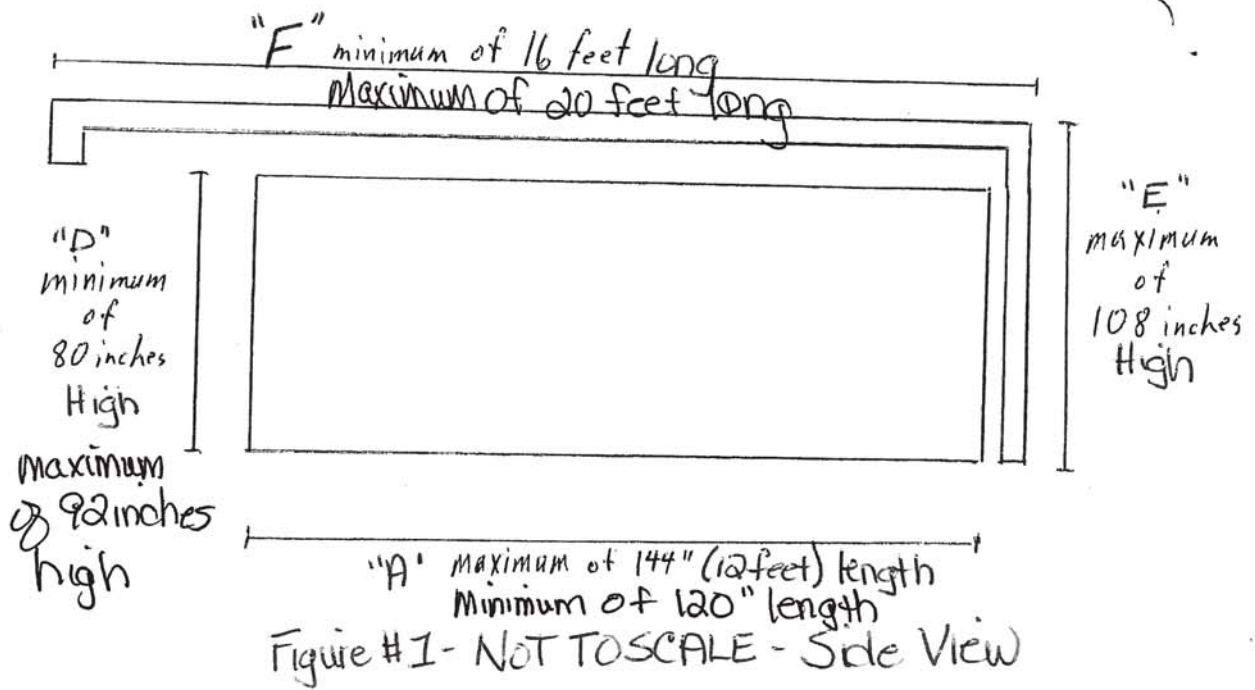 "F" minimum of 16 feet long
Maximum of 20 feet long
"D"
minimum
of
80 inches
High
maximum
of 92 inches
high
"E"
maximum
of
108 inches
High
"A' maximum of 144" (12 feet) length
Minimum of 120" length
Figure #1- NOT TO SCALE - Side View